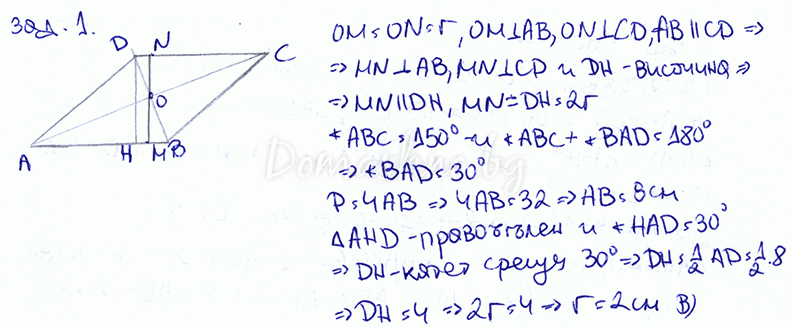 зад. 1.
D N C
O
A H M B
OM=ON=r, OM⊥AB, ON⊥CD, AB∥CD ⇒
⇒ MN⊥AB, MN⊥CD и DH-височина ⇒
⇒ MN∥DH, MN=DH=2r
∢ABC=150° и ∢ABC+∢BAD=180°
⇒ ∢BAD=30°
P=4AB ⇒ 4AB=32 ⇒ AB=8cm
△AHD-правоъгълен и ∢HAD=30°
⇒ DH-катет срещу 30° ⇒ DH=1/2 AD=1/2.8
⇒ DH=4 ⇒ 2r=4 ⇒ r=2cm В)
Domashno.bg